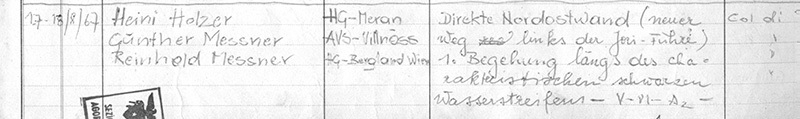 17-18/8/67 Heini Holzer HG-Meran Direkte Nordostwand (neuer Col di
Günther Messner AVS-Villnöss Weg links der Jori-Führe) "
Reinhold Messner HG-Bergland Wien 1. Begehung längs des cha- "
rakteristischen schwarzen
Wasserstreifens - V-VI- A2 -
SEZI
AGO